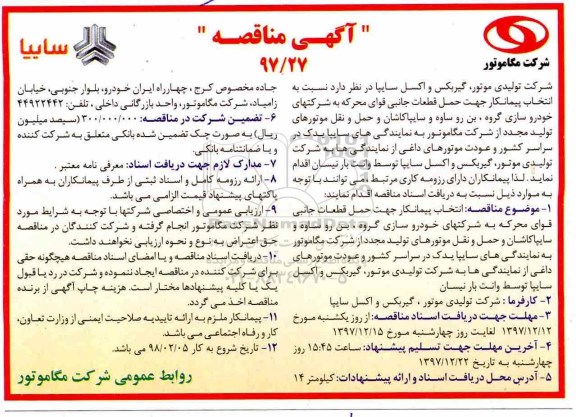 " آگهـی مناقصـه "
۹۷/۲۷
شرکت مگاموتور
سایپا
شرکت تولیدی موتور، گیربکس و اکسل سایپا در نظر دارد نسبت به
انتخاب پیمانکار جهت حمل قطعات جانبی قوای محرکه به شرکتهای
خودرو سازی گروه ، بن رو ساوه و سایپاکاشان و حمل و نقل موتورهای
تولید مجدد از شرکت مگاموتور به نمایندگی های سایپا یدک در
سراسر کشور و عودت موتورهای داغی از نمایندگی ها به شرکت
تولیدی موتور، گیربکس و اکسل سایپا توسط وانت بار نیسان اقدام
نماید . لذا پیمانکاران دارای رزومه کاری مرتبط می توانند با توجه
به موارد ذیل نسبت به دریافت اسناد مناقصه اقدام نمایند:
۱- موضوع مناقصه: انتخاب پیمانکار جهت حمل قطعات جانبی
قوای محرکه به شرکتهای خودرو سازی گروه ، بن رو ساوه و
سایپاکاشان و حمل و نقل موتورهای تولید مجدد از شرکت مگاموتور
به نمایندگی های سایپا یدک در سراسر کشور و عودت موتورهای
داغی از نمایندگی ها به شرکت تولیدی موتور، گیربکس و اکسل
سایپا توسط وانت بار نیسان
۲- کارفرما : شرکت تولیدی موتور ، گیربکس و اکسل سایپا
۳- مهلت جهت دریافت اسناد مناقصه: از روز یکشنبه مورخ
۱۳۹۷/۱۲/۱۲ لغایت روز چهارشنبه مورخ ۱۳۹۷/۱۲/۱۵
۴- آخرین مهلت جهت تسلیم پیشنهاد: ساعت ۱۵:۴۵ روز
چهارشنبه به تاریخ ۱۳۹۷/۱۲/۲۲
۵- آدرس محل دریافت اسناد و ارائه پیشنهادات: کیلومتر ۱۴
جاده مخصوص کرج ، چهارراه ایران خودرو، بلوار جنوبی، خیابان
زامیاد، شرکت مگاموتور، واحد بازرگانی داخلی ، تلفن: ۴۴۹۲۲۴۴۲
۶- تضمین شرکت در مناقصه: ۳۰۰/۰۰۰/۰۰۰ (سیصد میلیون
ریال) به صورت چک تضمین شده بانکی متعلق به شرکت کننده
و یا ضمانتنامه بانکی.
۷- مدارک لازم جهت دریافت اسناد: معرفی نامه معتبر .
۸- ارائه رزومه کامل و اسناد ثبتی از طرف پیمانکاران به همراه
پاکتهای پیشنهاد قیمت الزامی می باشد.
۹- ارزیابی عمومی و اختصاصی شرکتها با توجه به شرایط مورد
نظر شرکت مگاموتور انجام گرفته و شرکت کنندگان در مناقصه
حق اعتراض به نوع و نحوه ارزیابی نخواهند داشت.
۱۰- دریافت اسناد مناقصه و یا امضای اسناد مناقصه هیچگونه حقی
برای شرکت کننده در مناقصه ایجاد ننموده و شرکت در رد یا قبول
یک یا کلیه پیشنهادها مختار است. هزینه چاپ آگهی از برنده
مناقصه اخذ می گردد.
۱۱- پیمانکار ملزم به ارائه تاییدیه صلاحیت ایمنی از وزارت تعاون،
کار و رفاه اجتماعی می باشد.
۱۲- تاریخ شروع به کار ۹۸/۰۲/۰۵ می باشد.
روابط عمومی شرکت مگاموتور